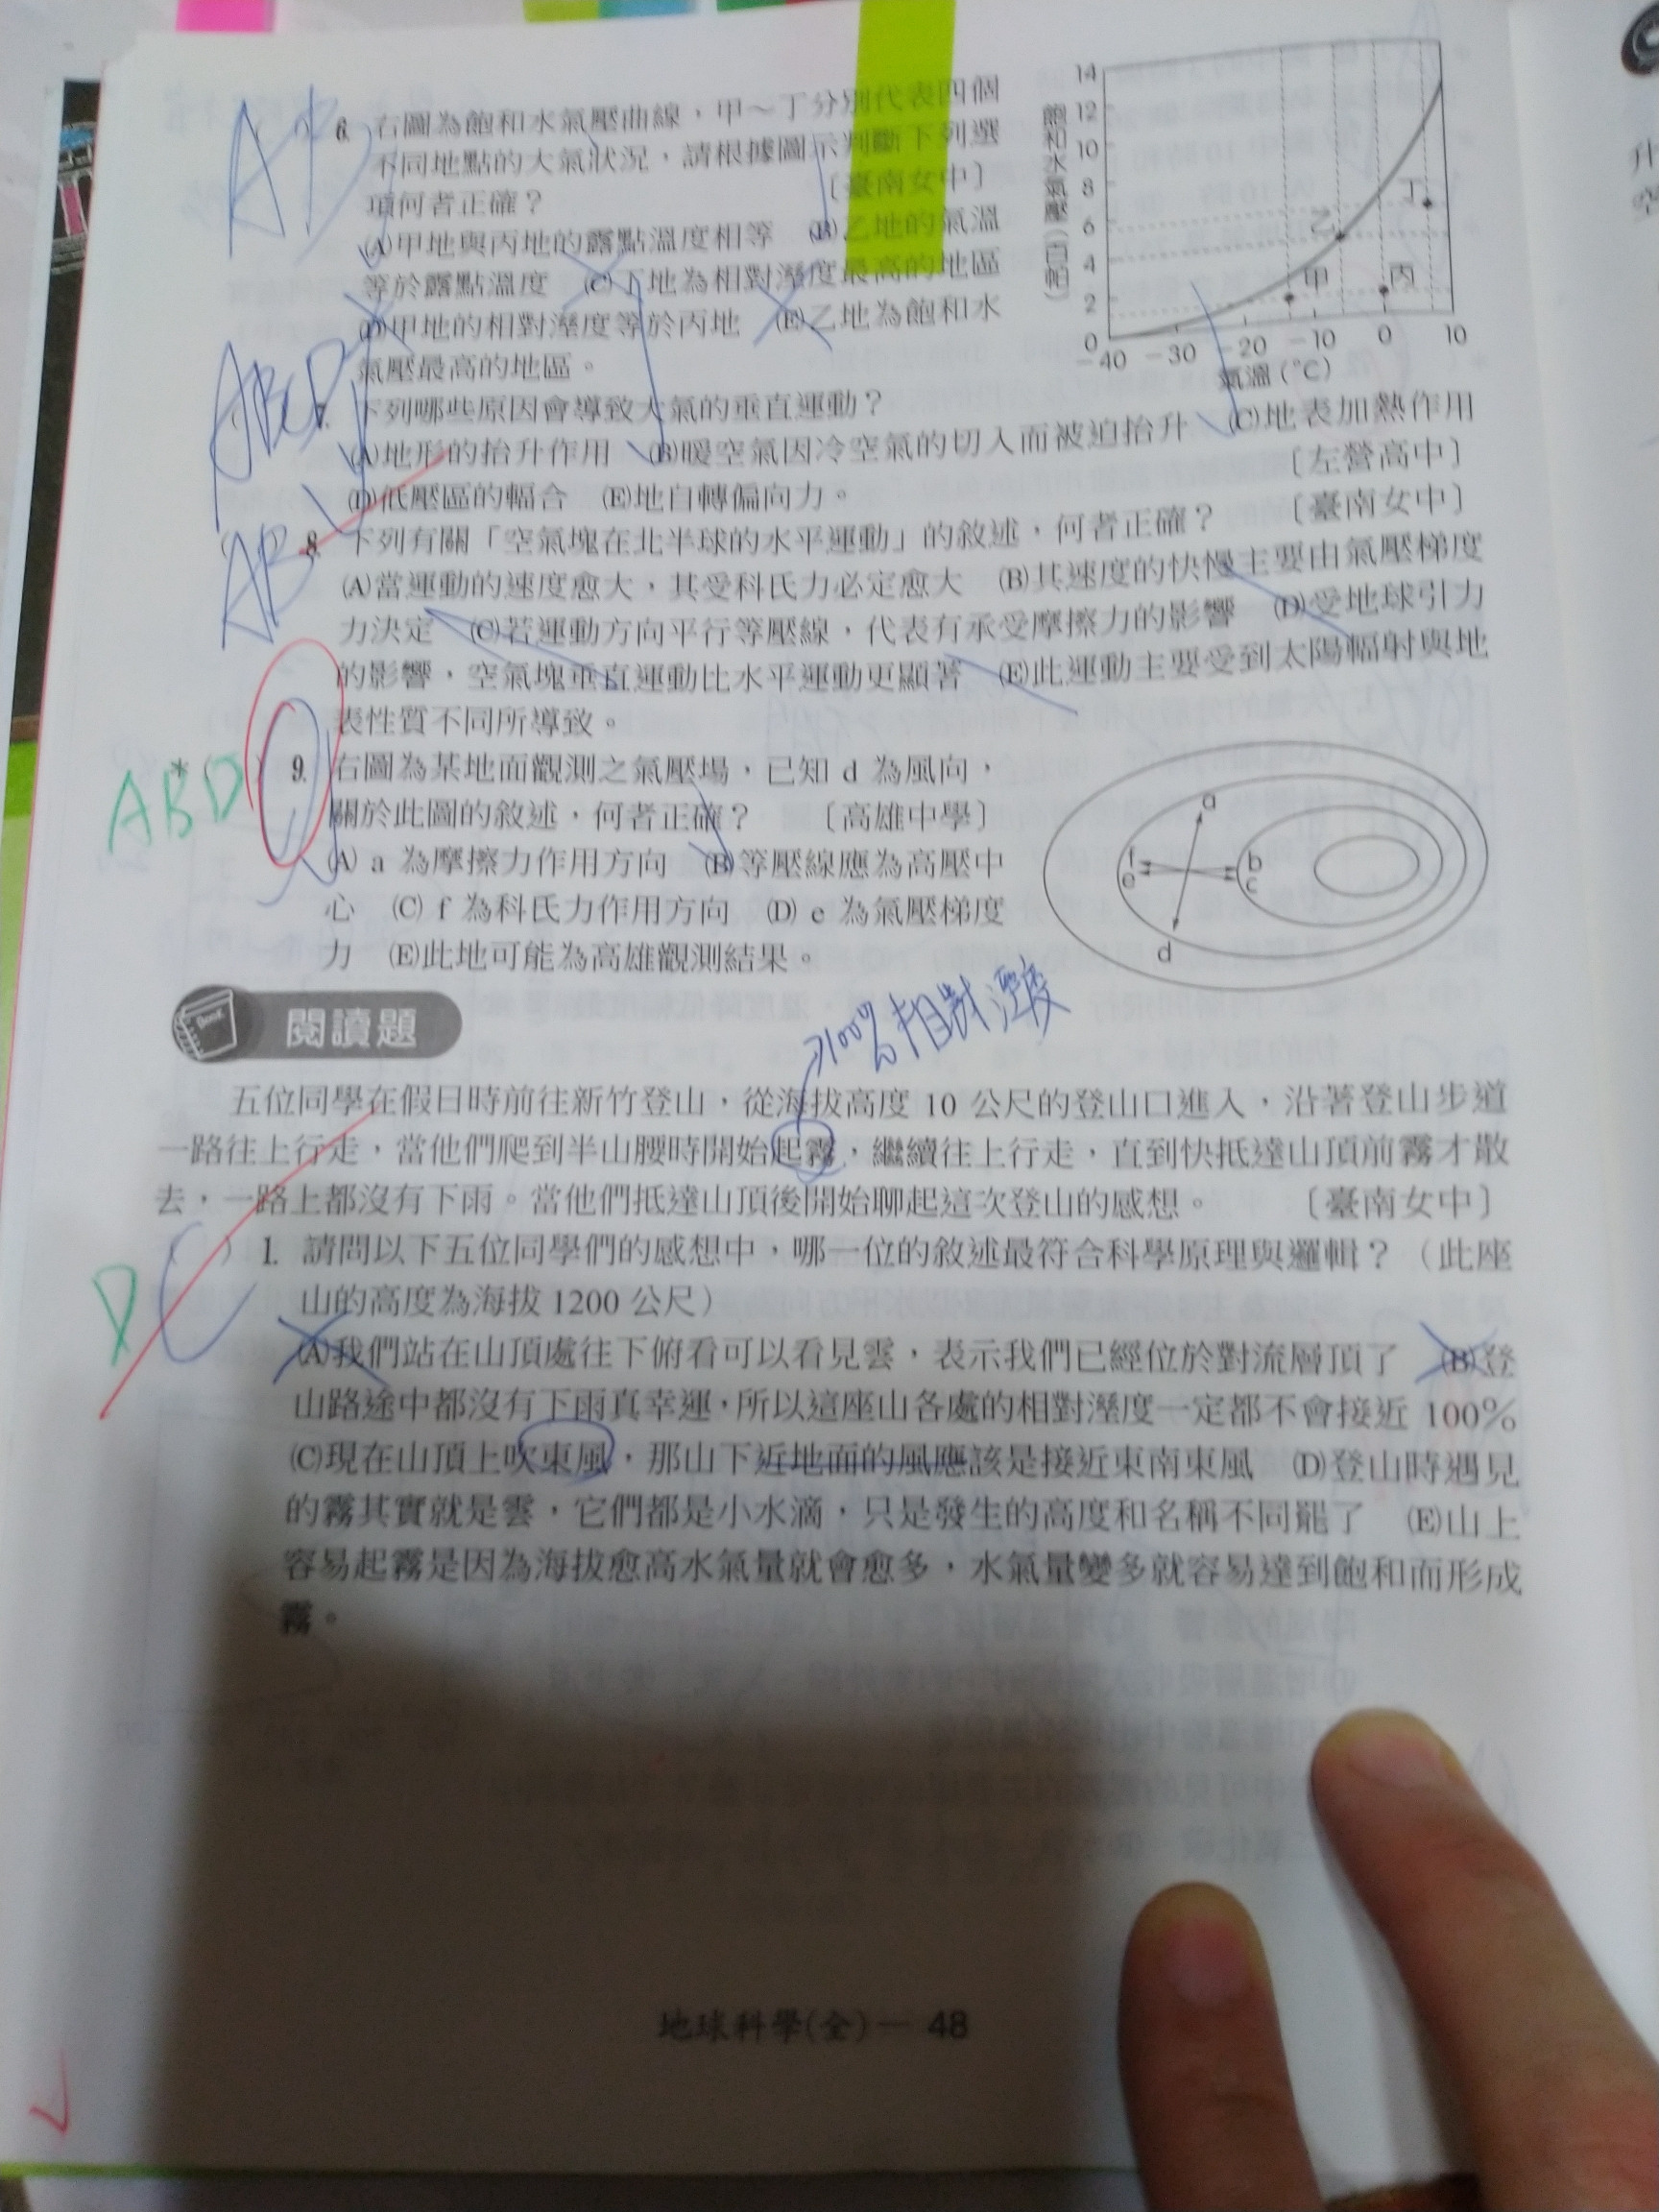 6. 右圖為飽和水氣壓曲線，甲～丁分別代表四個
不同地點的大氣狀況，請根據圖示判斷下列選
項何者正確？ 〔臺南女中〕
(A)甲地與丙地的露點溫度相等 (B)乙地的氣溫
等於露點溫度 (C)丁地為相對溼度最高的地區
(D)甲地的相對溼度等於丙地 (E)乙地為飽和水
氣壓最高的地區。
飽和水氣壓(百帕)
14
12
10
8
6
4
2
0
甲
乙
丙
丁
-40 -30 -20 -10 0 10
氣溫(°C)
AB
ABCD
7. 下列哪些原因會導致大氣的垂直運動？
(A)地形的抬升作用 (B)暖空氣因冷空氣的切入而被迫抬升 (C)地表加熱作用
(D)低壓區的輻合 (E)地自轉偏向力。 〔左營高中〕
AB
8. 下列有關「空氣塊在北半球的水平運動」的敘述，何者正確？ 〔臺南女中〕
(A)當運動的速度愈大，其受科氏力必定愈大 (B)其速度的快慢主要由氣壓梯度
力決定 (C)若運動方向平行等壓線，代表有承受摩擦力的影響 (D)受地球引力
的影響，空氣塊垂直運動比水平運動更顯著 (E)此運動主要受到太陽輻射與地
表性質不同所導致。
ABD
* 9. 右圖為某地面觀測之氣壓場，已知 d 為風向，
關於此圖的敘述，何者正確？ 〔高雄中學〕
(A) a 為摩擦力作用方向 (B)等壓線應為高壓中
心 (C) f 為科氏力作用方向 (D) e 為氣壓梯度
力 (E)此地可能為高雄觀測結果。
a
f b
e c
d
Book
閱讀題
→100% 相對溼度
五位同學在假日時前往新竹登山，從海拔高度 10 公尺的登山口進入，沿著登山步道
一路往上行走，當他們爬到半山腰時開始起霧，繼續往上行走，直到快抵達山頂前霧才散
去，一路上都沒有下雨。當他們抵達山頂後開始聊起這次登山的感想。 〔臺南女中〕
D
C
( ) 1. 請問以下五位同學們的感想中，哪一位的敘述最符合科學原理與邏輯？（此座
山的高度為海拔 1200 公尺）
(A)我們站在山頂處往下俯看可以看見雲，表示我們已經位於對流層頂了 (B)登
山路途中都沒有下雨真幸運，所以這座山各處的相對溼度一定都不會接近 100%
(C)現在山頂上吹東風，那山下近地面的風應該是接近東南東風 (D)登山時遇見
的霧其實就是雲，它們都是小水滴，只是發生的高度和名稱不同罷了 (E)山上
容易起霧是因為海拔愈高水氣量就會愈多，水氣量變多就容易達到飽和而形成
霧。
地球科學(全)— 48
升
空